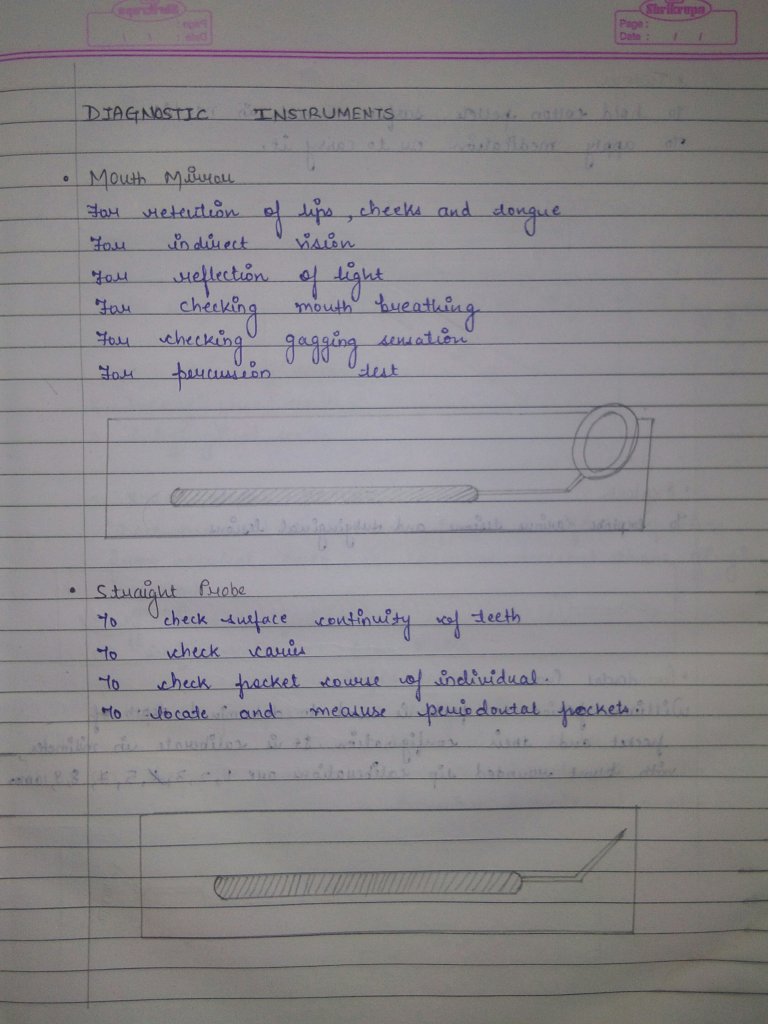 Shrikrupa
Page :
Date : / /
DIAGNOSTIC INSTRUMENTS
• Mouth Mirror
For retention of lips, cheeks and tongue
For indirect vision
For reflection of light
For checking mouth breathing
For checking gagging sensation
For percussion test
• Straight Probe
To check surface continuity of teeth
To check caries
To check pocket course of individual.
To locate and measure periodontal pockets.